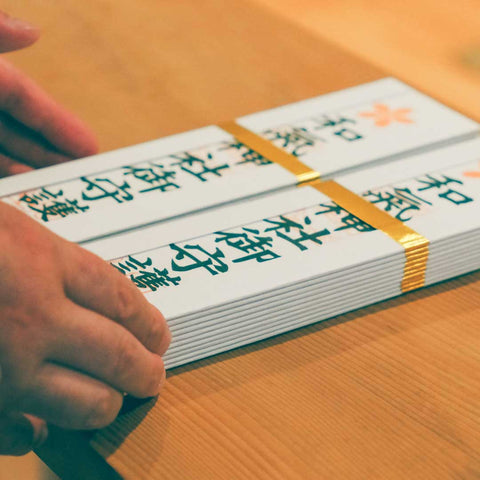 和氣神社御守護
和氣神社御守護